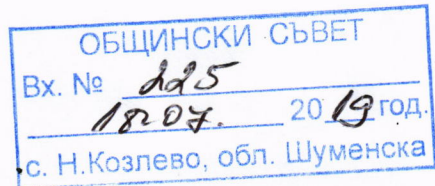 ОБЩИНСКИ СЪВЕТ
Вх. № 225
18.07. 2019 год.
с. Н.Козлево, обл. Шуменска